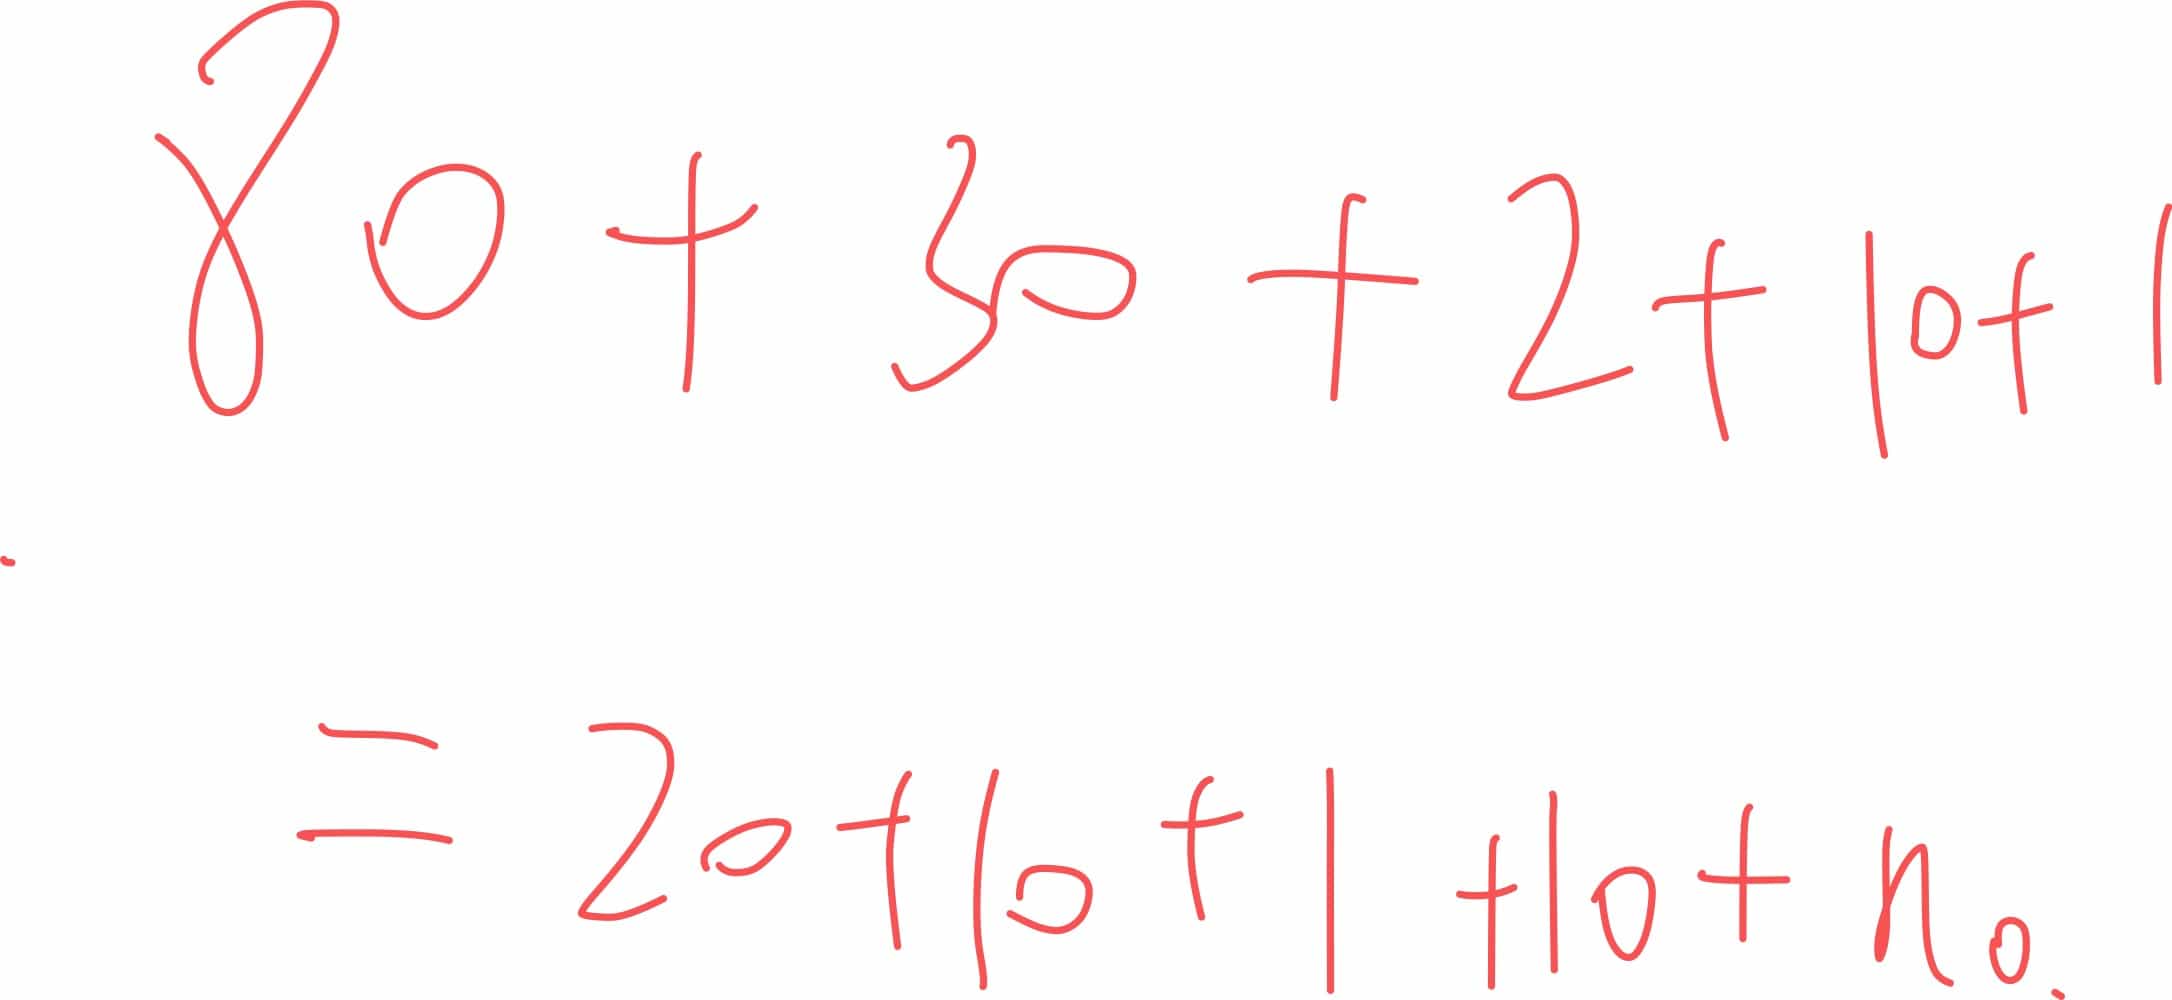 80 + 30 + 2 + 10 + 1
= 20 + 10 + 1 + 10 + n0.